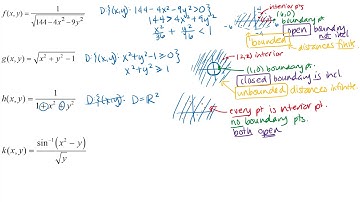 f(x,y) = 1 / √(144 − 4x² − 9y²)
D{(x,y): 144 − 4x² − 9y² > 0}
144 > 4x² + 9y²
x²/36 + y²/16 < 1
interior pts
boundary pt.
open boundary not incl
bounded distances finite
g(x,y) = √(x² + y² − 1)
D{(x,y): x² + y² − 1 ≥ 0}
x² + y² ≥ 1
(2,2) interior
(1,0) boundary pt.
closed boundary is incl.
unbounded distances infinite.
h(x,y) = 1 / (1 + x² + y²)
D = ℝ²
every pt is interior pt.
no boundary pts.
both open
k(x,y) = sin⁻¹(x² − y) / √y